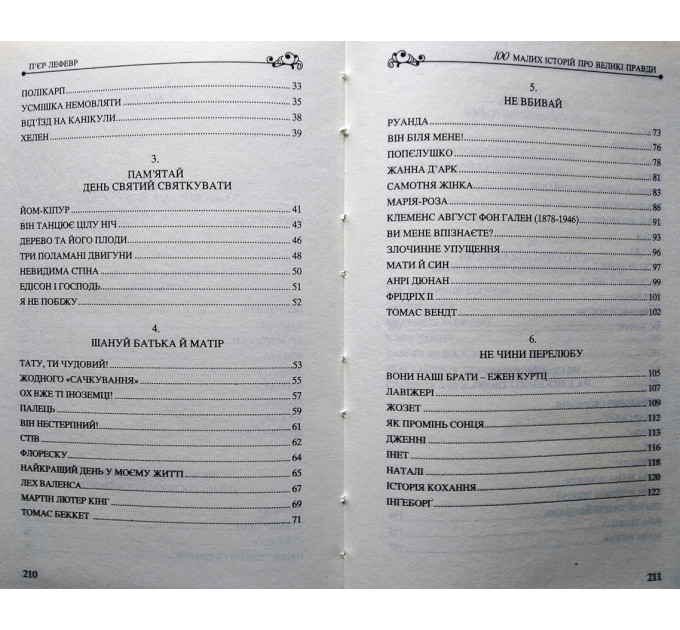 П'ЄР ЛЕФЕВР
ПОЛІКАРП 33
УСМІШКА НЕМОВЛЯТИ 35
ВІД'ЇЗД НА КАНІКУЛИ 38
ХЕЛЕН 39
3.
ПАМ'ЯТАЙ
ДЕНЬ СВЯТИЙ СВЯТКУВАТИ
ЙОМ-КІПУР 41
ВІН ТАНЦЮЄ ЦІЛУ НІЧ 43
ДЕРЕВО ТА ЙОГО ПЛОДИ 46
ТРИ ПОЛАМАНІ ДВИГУНИ 48
НЕВИДИМА СТІНА 50
ЕДІСОН І ГОСПОДЬ 51
Я НЕ ПОБІЖУ 52
4.
ШАНУЙ БАТЬКА Й МАТІР
ТАТУ, ТИ ЧУДОВИЙ! 53
ЖОДНОГО «САЧКУВАННЯ» 55
ОХ ВЖЕ ТІ ІНОЗЕМЦІ! 57
ПАЛЕЦЬ 59
ВІН НЕСТЕРПНИЙ! 61
СТІВ 62
ФЛОРЕСКУ 64
НАЙКРАЩИЙ ДЕНЬ У МОЄМУ ЖИТТІ 65
ЛЕХ ВАЛЕНСА 67
МАРТІН ЛЮТЕР КІНГ 69
ТОМАС БЕККЕТ 71
210
100 МАЛИХ ІСТОРІЙ ПРО ВЕЛИКІ ПРАВДИ
5.
НЕ ВБИВАЙ
РУАНДА 73
ВІН БІЛЯ МЕНЕ! 76
ПОПЄЛУШКО 78
ЖАННА Д'АРК 81
САМОТНЯ ЖІНКА 83
МАРІЯ-РОЗА 86
КЛЕМЕНС АВГУСТ ФОН ГАЛЕН (1878-1946) 91
ВИ МЕНЕ ВПІЗНАЄТЕ? 93
ЗЛОЧИННЕ УПУЩЕННЯ 96
МАТИ Й СИН 97
АНРІ ДЮНАН 99
ФРІДРІХ II 101
ТОМАС ВЕНДТ 102
6.
НЕ ЧИНИ ПЕРЕЛЮБУ
ВОНИ НАШІ БРАТИ – ЕЖЕН КУРТЦ 105
ЛАВІЖЕРІ 107
ЖОЗЕТ 109
ЯК ПРОМІНЬ СОНЦЯ 112
ДЖЕННІ 113
ІНЕТ 116
НАТАЛІ 118
ІСТОРІЯ КОХАННЯ 120
ІНГЕБОРҐ 122
211